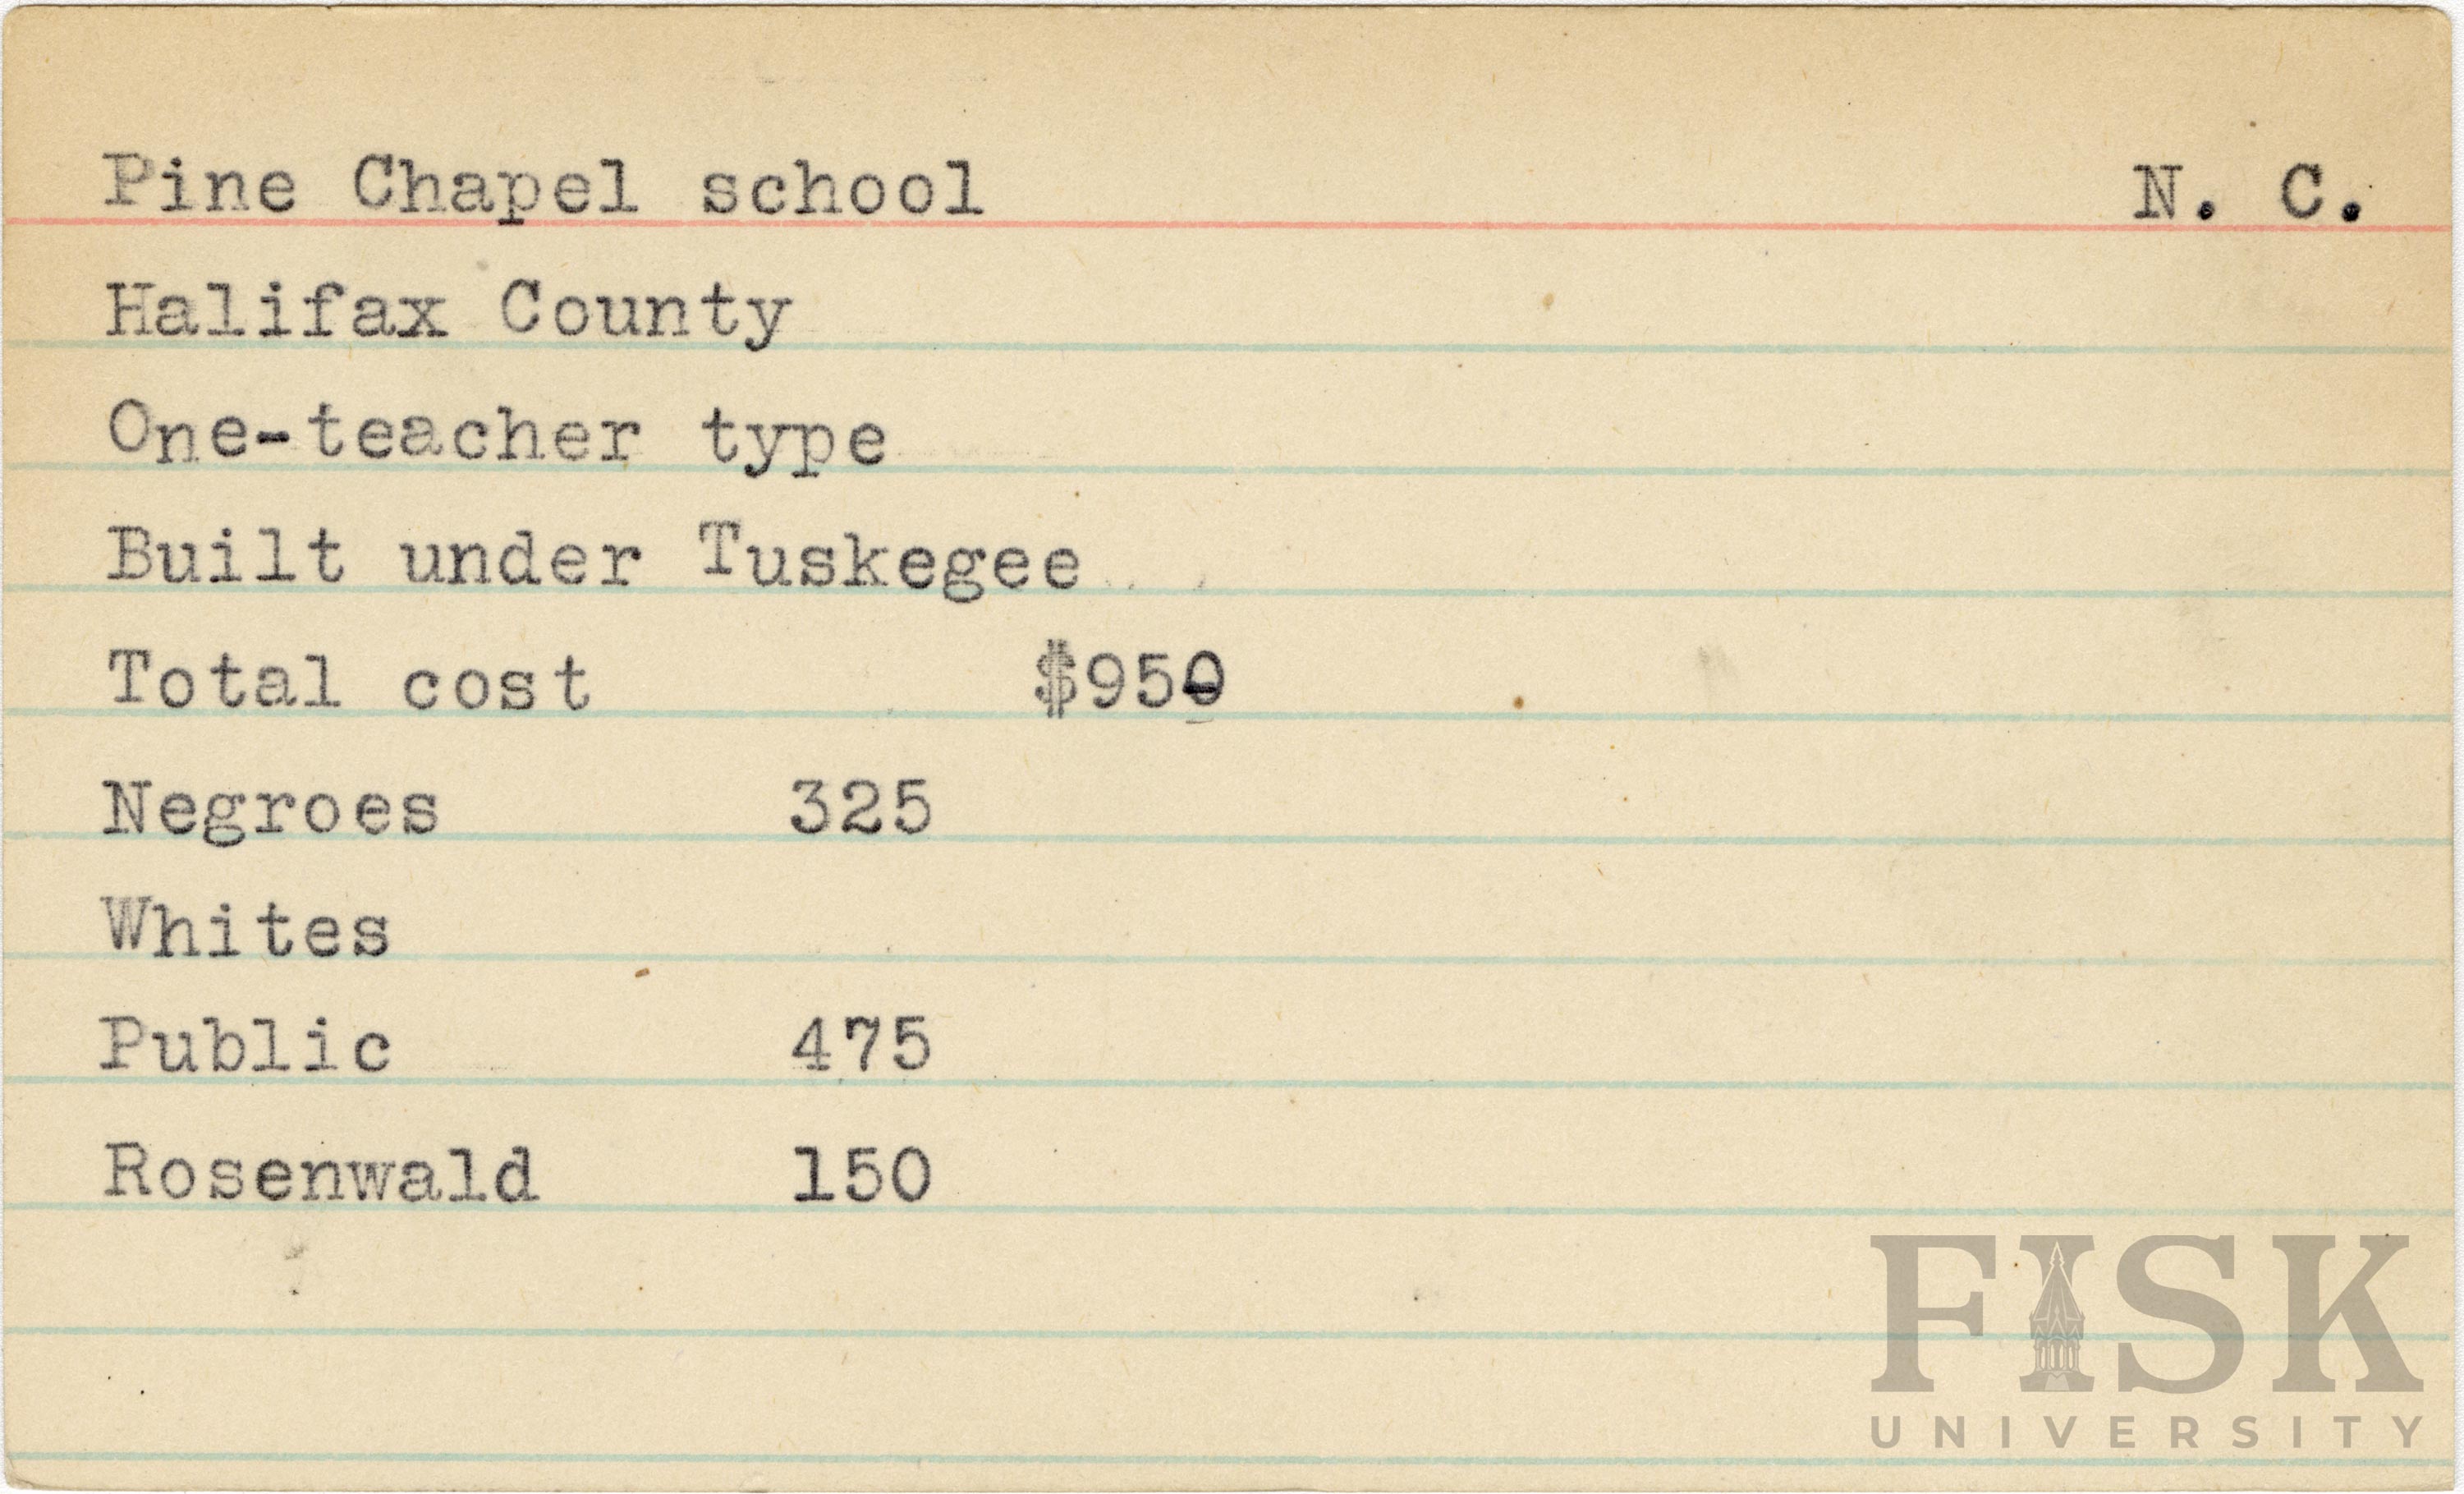 Pine Chapel school N. C.
Halifax County
One-teacher type
Built under Tuskegee
Total cost $950
Negroes 325
Whites
Public 475
Rosenwald 150
FISK
UNIVERSITY